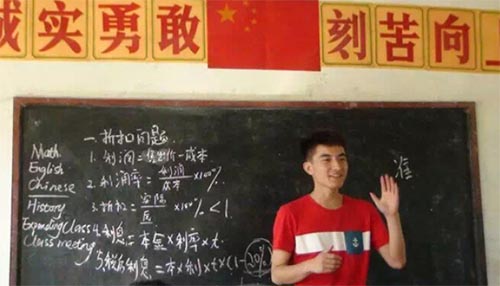 诚实勇敢 刻苦向上
Math
English
Chinese
History
Expanding Class
Class meeting
一.折扣问题
1.利润=售出价-成本
2.利润率=利润/成本×100%
3.折扣= ×100%<1
4.利息=本金×利率×t
5.税后利息=本×利×t×(1-20%)
准